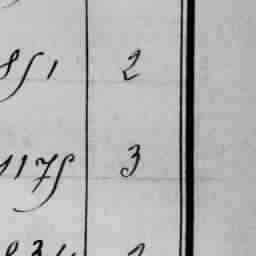 851 2
1175 3